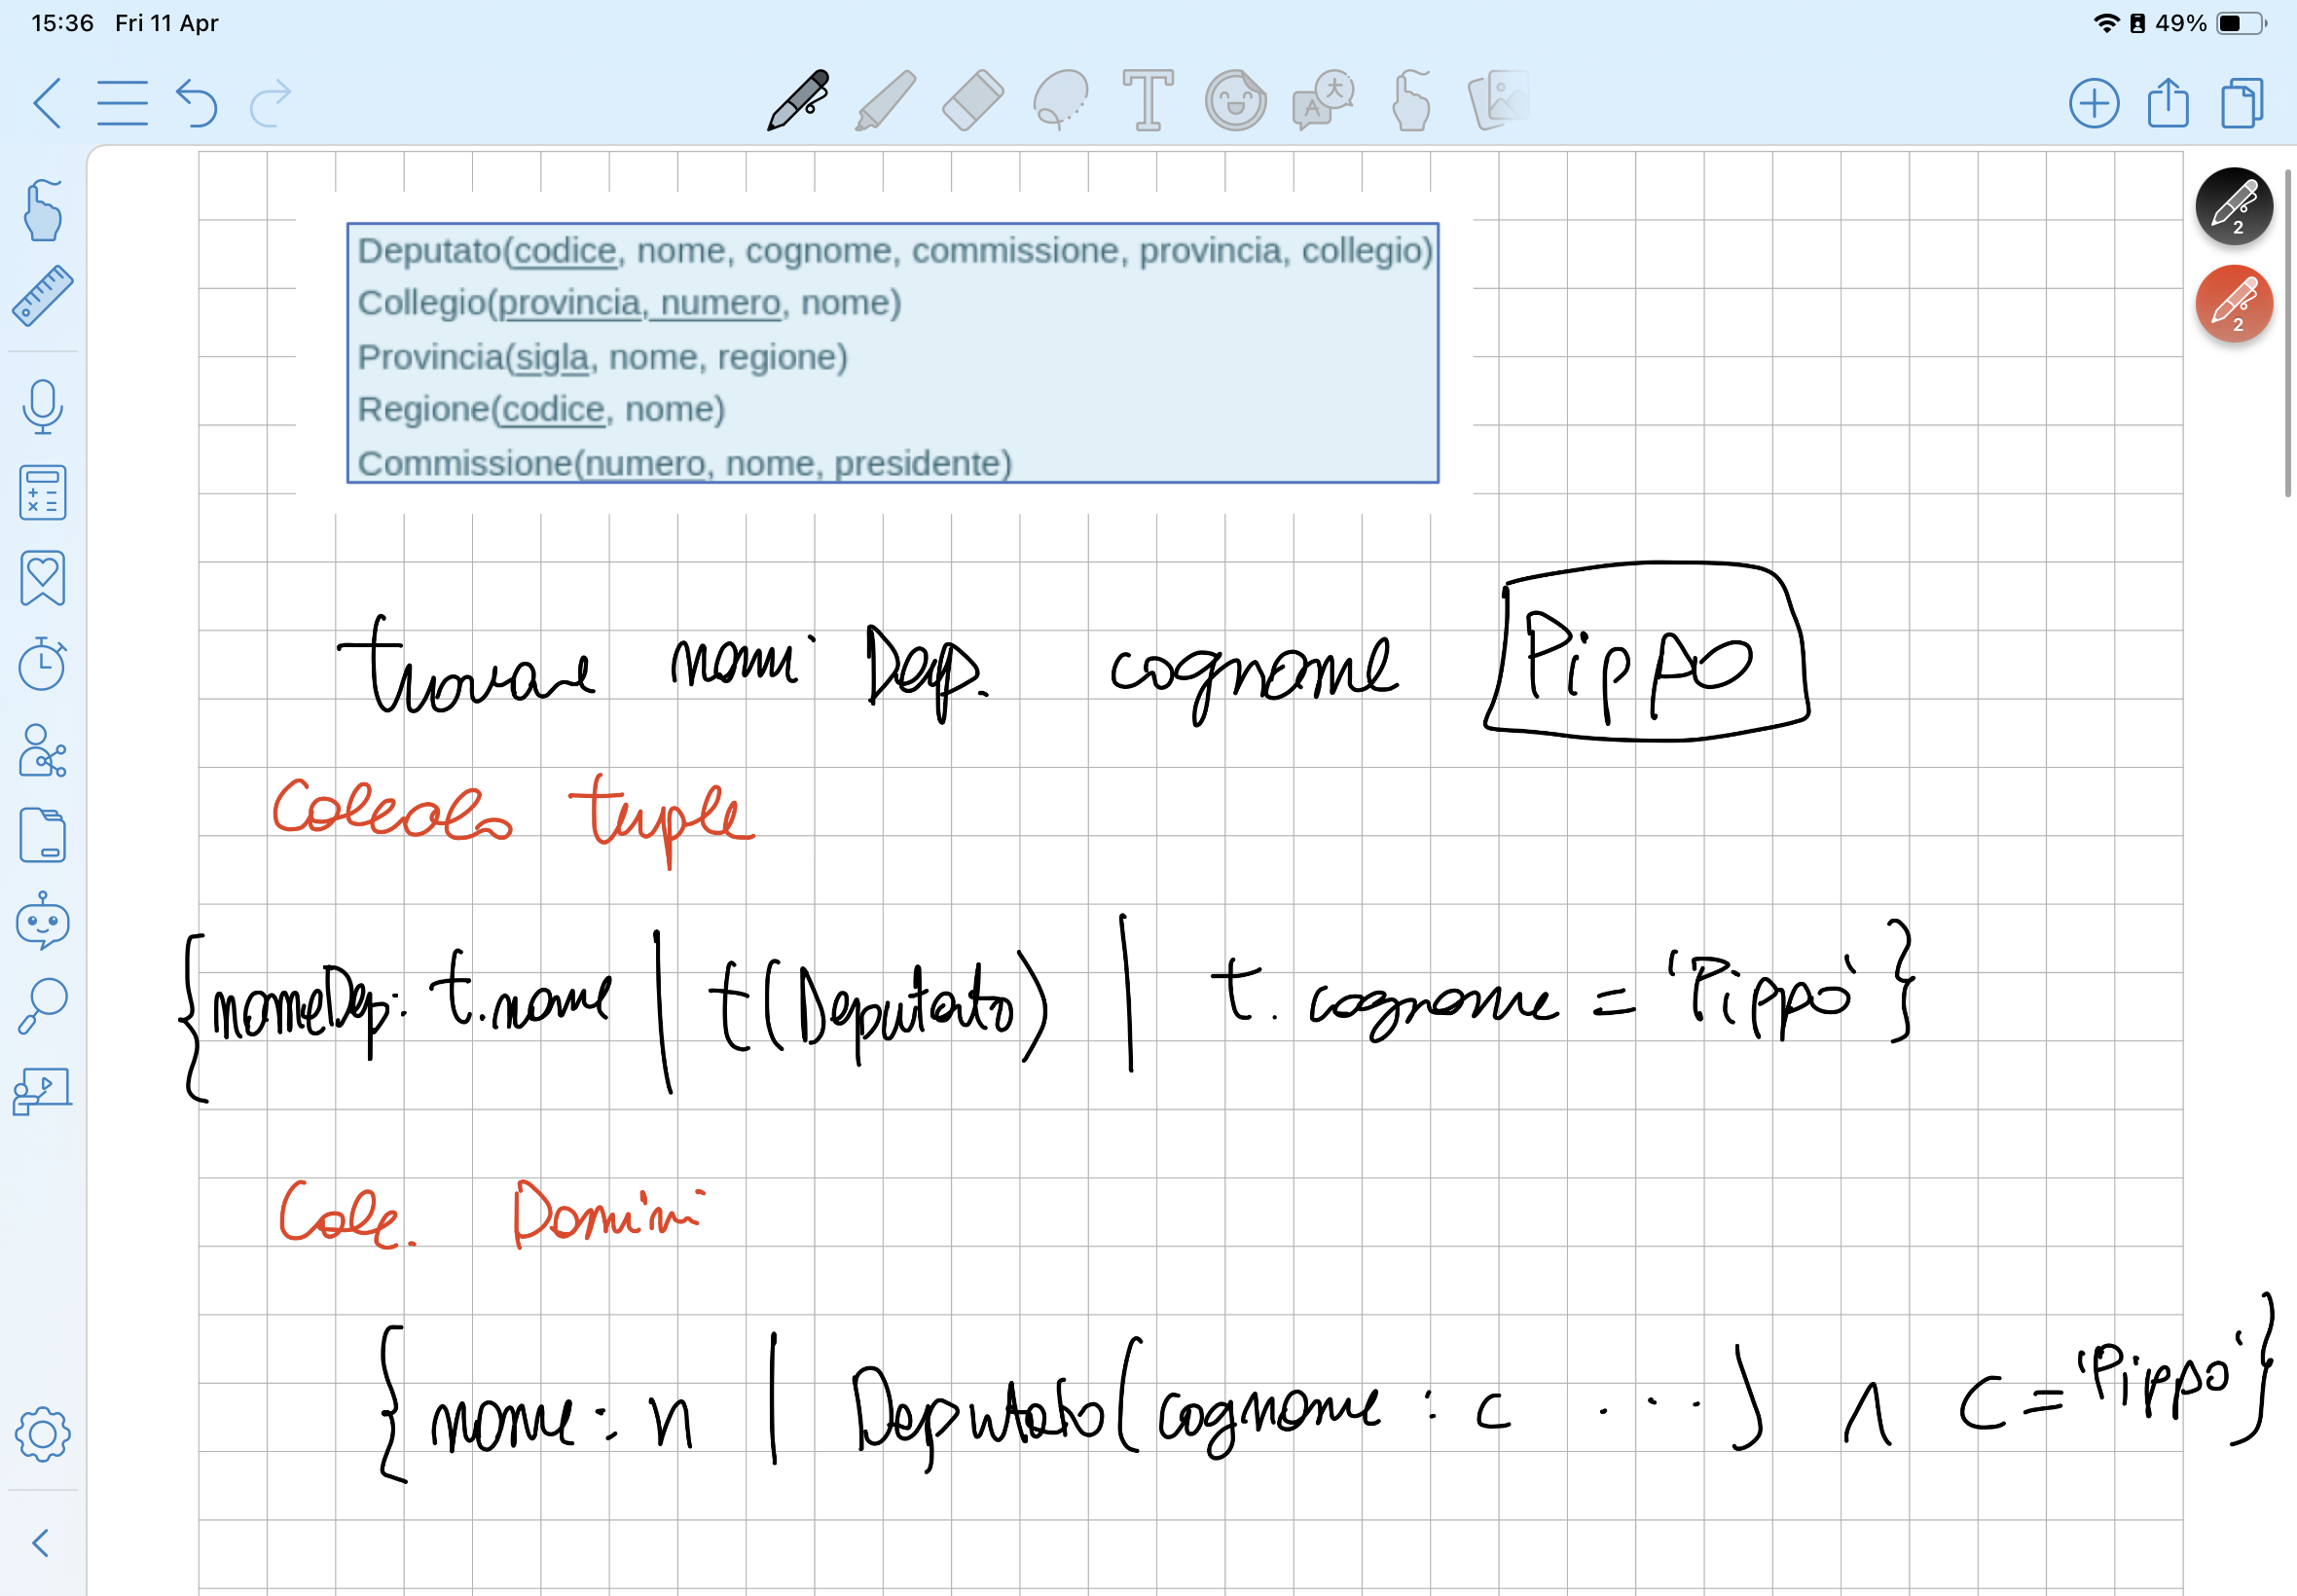 15:36 Fri 11 Apr 49%
2
2
Deputato(codice, nome, cognome, commissione, provincia, collegio)
Collegio(provincia, numero, nome)
Provincia(sigla, nome, regione)
Regione(codice, nome)
Commissione(numero, nome, presidente)
trovare nomi Dep. cognome Pippo
Calcolo tuple
{nomeDep: t.nome | t(Deputato) | t.cognome = 'Pippo'}
Calc. Domini
{nome: n | Deputato(cognome: c ...) ∧ c = 'Pippo'}